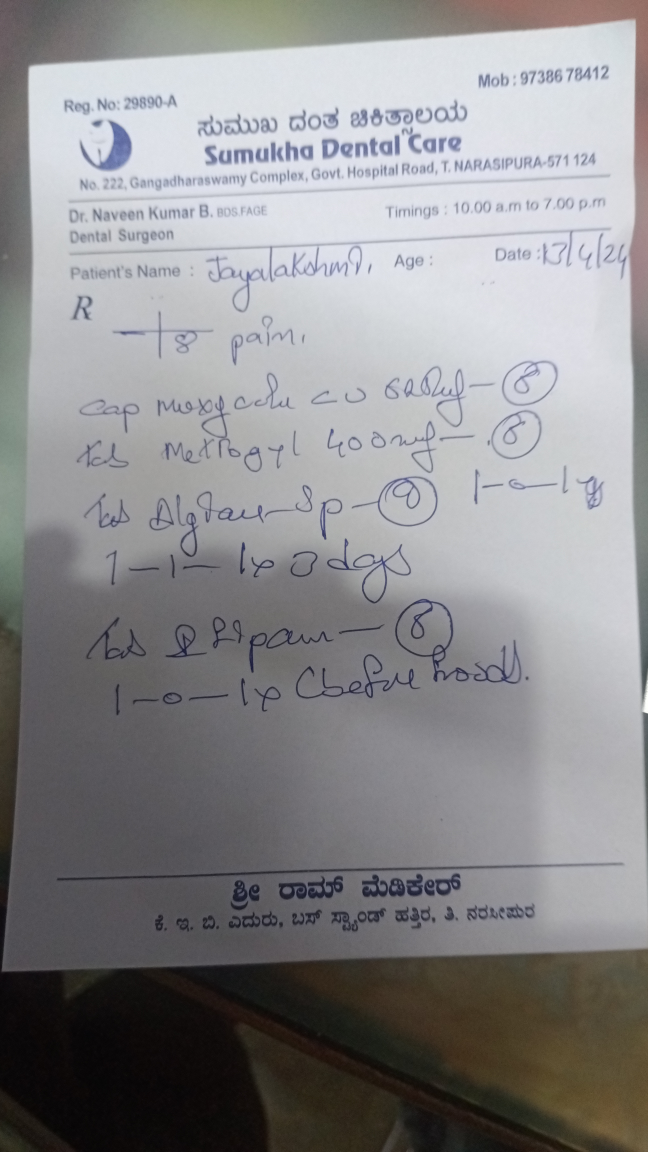 Reg. No: 29890-A
Mob : 97386 78412
ಸುಮುಖ ದಂತ ಚಿಕಿತ್ಸಾಲಯ
Sumukha Dental Care
No. 222, Gangadharaswamy Complex, Govt. Hospital Road, T. NARASIPURA-571 124
Dr. Naveen Kumar B. BDS.FAGE
Timings : 10.00 a.m to 7.00 p.m
Dental Surgeon
Patient's Name : Jayalakshmi, Age : Date : 13/4/24
R
8 pain,
Cap 625mg - 8
Tab Metrogyl 400mg - 8
1-0-1
Tab Sp - 9
1-1-1 x 3 days
Tab - 8
1-0-1 x before food
ಶ್ರೀ ರಾಮ್ ಮೆಡಿಕೇರ್
ಕೆ. ಇ. ಬಿ. ಎದುರು, ಬಸ್ ಸ್ಟ್ಯಾಂಡ್ ಹತ್ತಿರ, ತಿ. ನರಸೀಪುರ